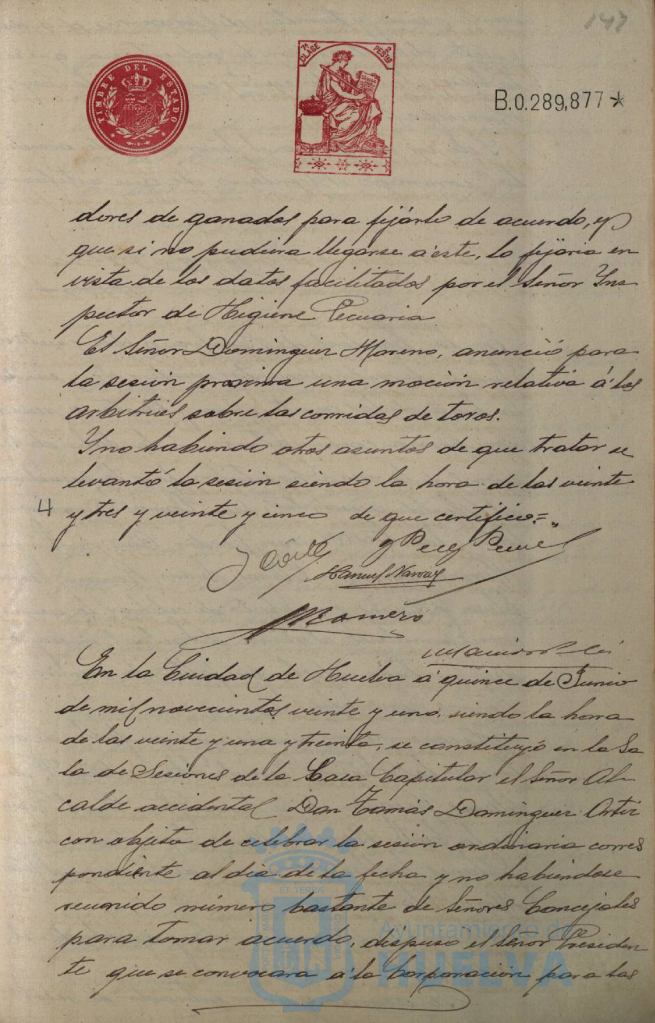 147
TIMBRE DEL ESTADO
7ª CLASE
B.0.289,877*
dores de ganados para fijarlo de acuerdo, y
que si no pudiera llegarse a este, lo fijaria en
vista de los datos facilitados por el Señor Ins
pector de Higiene Pecuaria
El Señor Dominguez Moreno, anunció para
la sesión proxima una moción relativa á los
arbitrios sobre las corridas de toros.
Y no habiendo otros asuntos de que tratar se
levantó la sesión siendo la hora de las veinte
4
y tres y veinte y cinco de que certifico=
Manuel Narvaez
Romero
En la Ciudad de Huelva á quince de Junio
de mil novecientos veinte y uno, siendo la hora
de las veinte y una y treinta, se constituyó en la Sa
la de Sesiones de la Casa Capitular el Señor Al
calde accidental Don Tomás Dominguez Ortiz
con objeto de celebrar la sesión ordinaria corres
pondiente al dia de la fecha y no habiendose
reunido número bastante de Señores Concejales
para tomar acuerdo, dispuso el Señor Presiden
te que se convocara á la Corporación para las
Ayuntamiento de
HUELVA